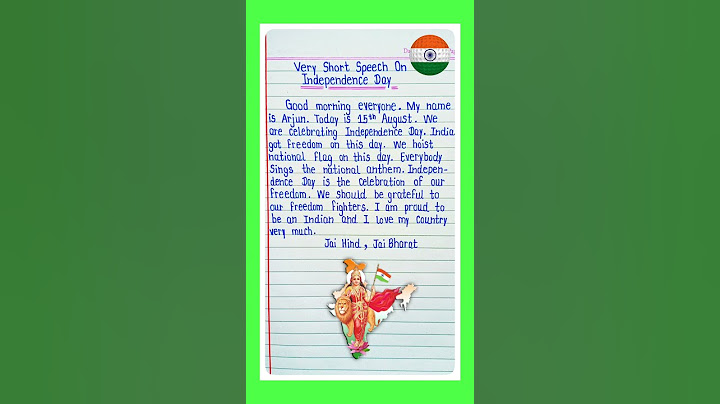 Very Short Speech On
Independence Day
Good morning everyone. My name
is Arjun. Today is 15th August. We
are celebrating Independence Day. India
got freedom on this day. We hoist
national flag on this day. Everybody
sings the national anthem. Indepen-
dence Day is the celebration of our
freedom. We should be grateful to
our freedom fighters. I am proud to
be an Indian and I love my country
very much.
Jai Hind, Jai Bharat